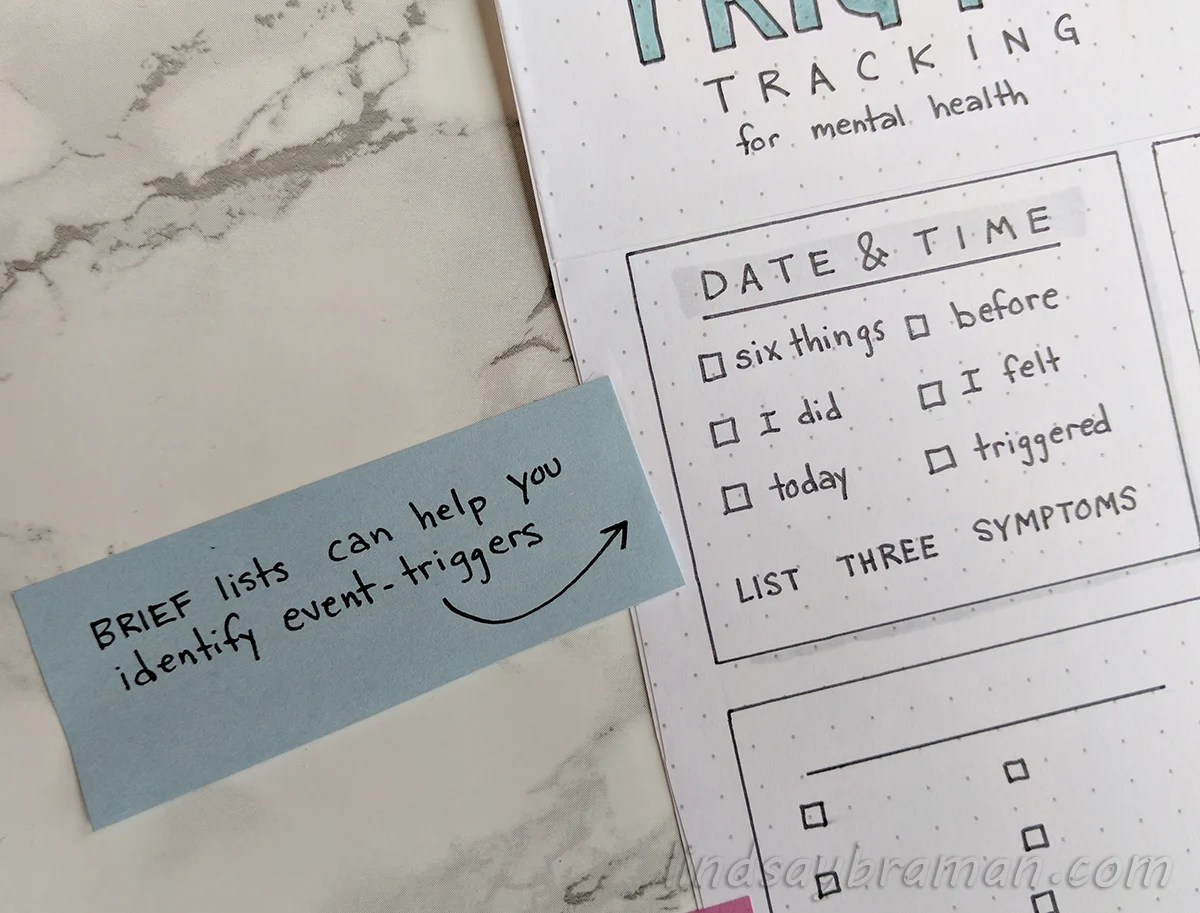 TRACKING
for mental health
DATE & TIME
□ six things □ before
□ I did □ I felt
□ today □ triggered
LIST THREE SYMPTOMS
BRIEF lists can help you
identify event-triggers
lindsaybraman.com